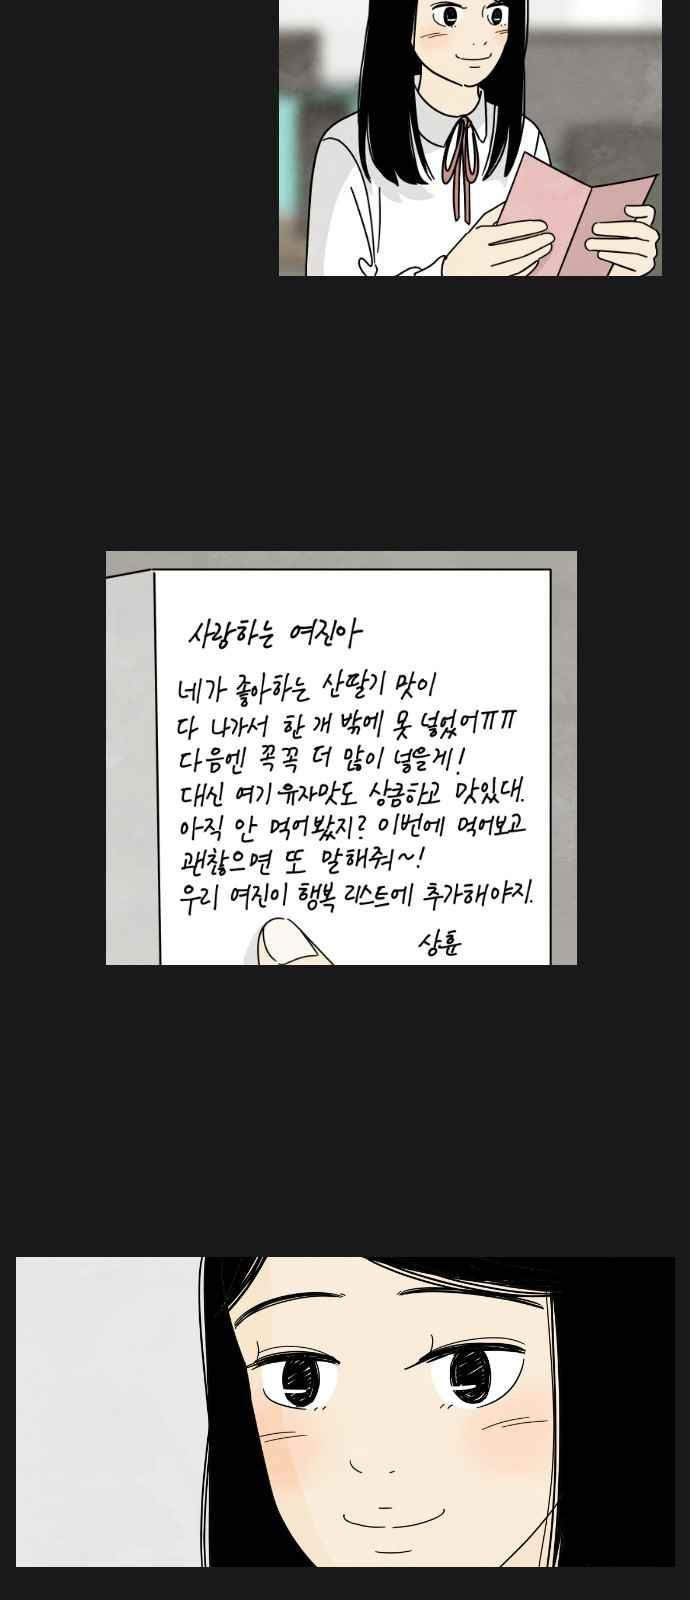 사랑하는 여진아
네가 좋아하는 산딸기 맛이
다 나가서 한 개 밖에 못 넣었어ㅠㅠ
다음엔 꼭꼭 더 많이 넣을게!
대신 여기 유자맛도 상큼하고 맛있대.
아직 안 먹어봤지? 이번에 먹어보고
괜찮으면 또 말해줘~!
우리 여진이 행복 리스트에 추가해야지.
상훈